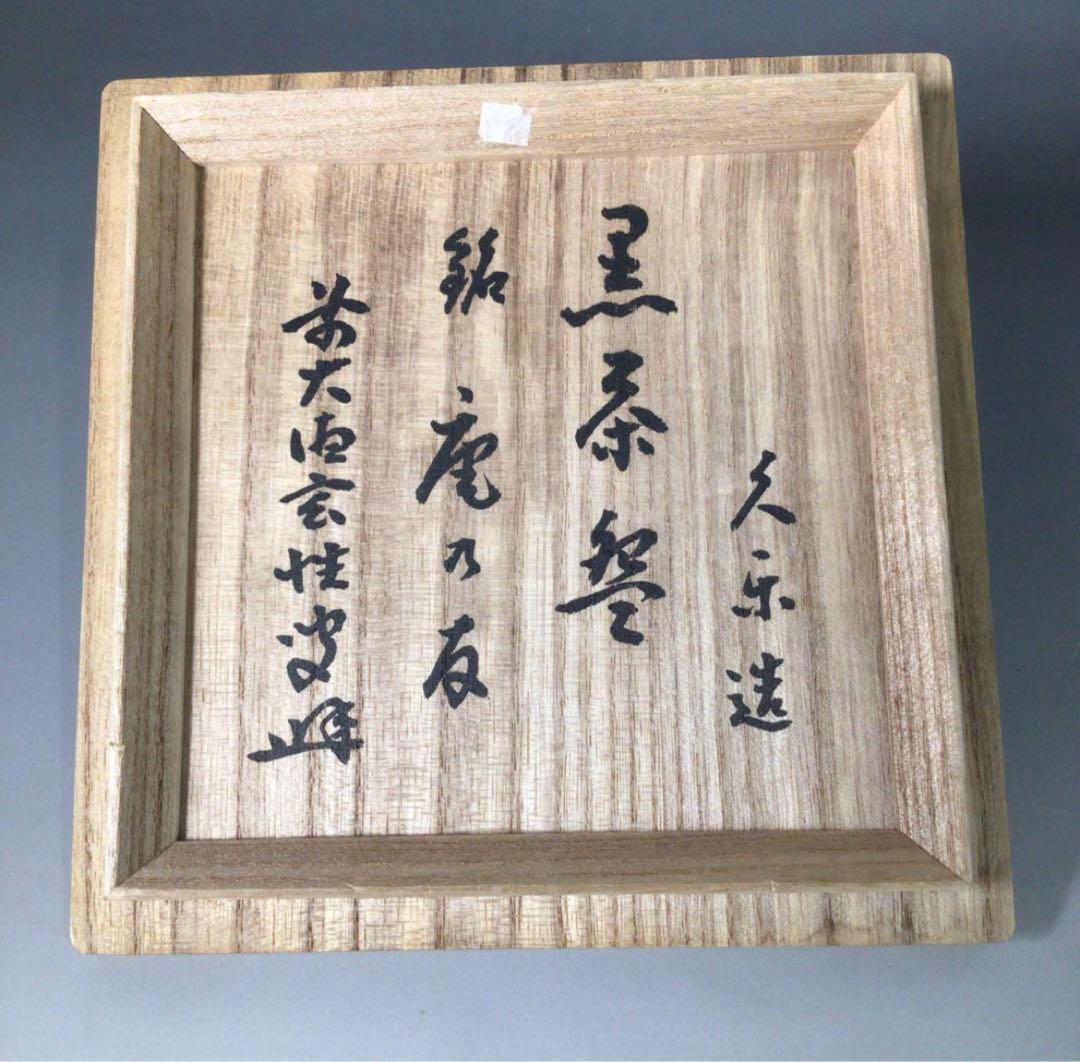 久楽造
黒茶碗
銘 庵乃友
前大徳玄性叟